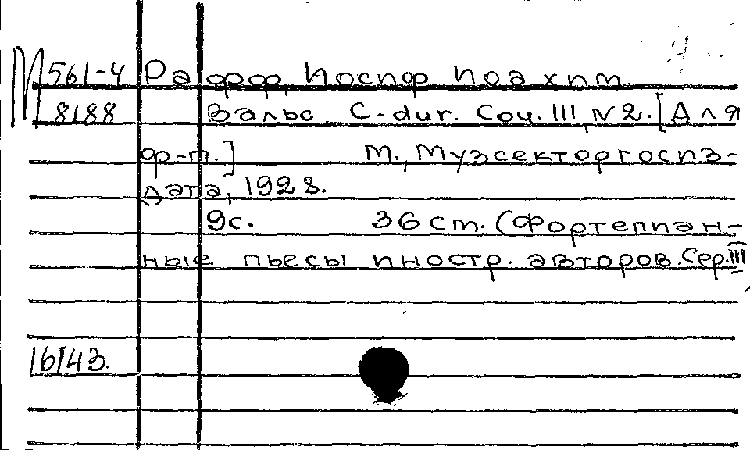 М 561-4 Рафф, Иосиф Иоахим
8188 Вальс C-dur. Соч. III, N2. [Для
ф-п.] М., Музсекторгосиз-
дата, 1928.
9с. 36 cm. (Фортепиан-
ные пьесы иностр. авторов. Сер. III
16143.